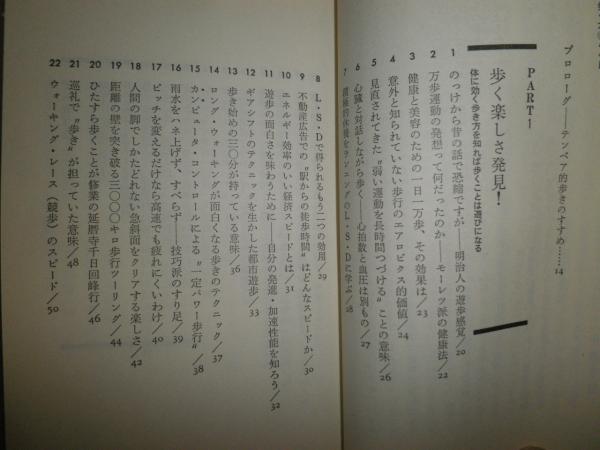 プロローグ――テンペア的歩きのすすめ……14
PART1
歩く楽しさ発見!
体に効く歩き方を知れば歩くことは遊びになる
1 のっけから昔の話で恐縮ですが――明治人の遊歩感覚/20
2 万歩運動の発想って何だったのか――モーレツ派の健康法/22
3 健康と美容のための一日一万歩、その効果は/23
4 意外と知られていない歩行のエアロビクス的価値/24
5 見直されてきた“弱い運動を長時間つづける”ことの意味/26
6 心臓と対話しながら歩く――心拍数と血圧は別もの/27
7 積極的休養をランニングのL・S・Dに学ぶ/28
8 L・S・Dで得られるもう二つの効用/29
9 不動産広告での“駅からの徒歩時間”はどんなスピードか/30
10 エネルギー効率のいい経済スピードとは/31
11 遊歩の面白さを味わうために――自分の発進・加速性能を知ろう/32
12 ギアシフトのテクニックを生かした都市遊歩/33
13 歩き始めの三〇分が持っている意味/36
14 ロング・ウォーキングが面白くなる歩きのテクニック/37
15 カンピュータ・コントロールによる“一定パワー歩行”/38
16 雨水をハネ上げず、すべらず 技巧派のすり足/39
17 ピッチを変えるだけなら高速でも疲れにくいわけ/40
18 人間の脚でしかたどれない急斜面をクリアする楽しさ/42
19 距離の壁を突き破る三〇〇〇キロ歩行ツーリング/44
20 ひたすら歩くことが修業の延暦寺千日回峰行/46
21 巡礼で“歩き”が担っていた意味/48
22 ウォーキング・レース(競歩)のスピード/50